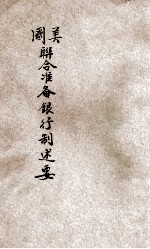 美國聯合准备銀行制述要